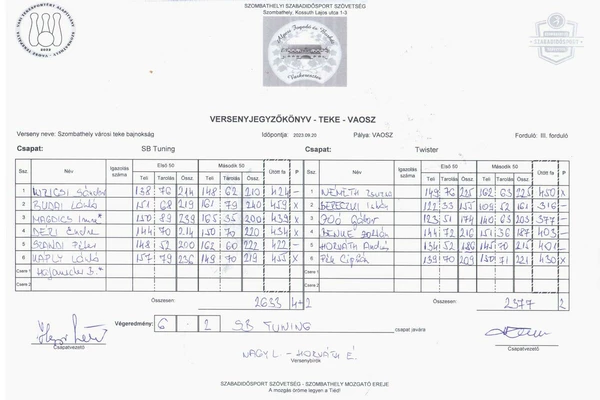 SZOMBATHELYI SZABADIDŐSPORT SZÖVETSÉG
Szombathely, Kossuth Lajos utca 1-3
VERSENYJEGYZŐKÖNYV - TEKE - VAOSZ
Verseny neve: Szombathely városi teke bajnokság Időpontja: 2023.09.20 Pálya: VAOSZ Forduló: III. forduló
Csapat: SB Tuning Csapat: Twister
Ssz. Név Igazolás száma Első 50 Második 50 Ütött fa P Ssz. Név Igazolás száma Első 50 Második 50 Ütött fa P
Teli Tarolás Össz. Teli Tarolás Össz. Teli Tarolás Össz. Teli Tarolás Össz.
1 Sándor 138 76 214 148 62 210 424 — 1 NÉMETH Zsuzsa 149 76 225 162 63 225 450 x
2 BUDAI László 151 68 219 161 79 240 459 x 2 122 33 155 109 52 161 316 -
3 MAGDICS Imre* 150 89 239 165 35 200 439 x 3 Joó Gábor 123 51 174 140 63 203 377 -
4 DÉRI Endre 144 70 214 150 70 220 434 x 4 BENKE Zoltán 144 72 216 151 36 187 403 -
5 SZANDI Péter 148 52 200 162 60 222 422 — 5 HORVÁTH András 134 52 186 145 70 215 401 -
6 KÁPLY László 157 79 236 149 70 219 455 x 6 139 70 209 150 71 221 430 x
Csere 1 Csere 1
Csere 2 Csere 2
Összesen: 2633 4+2 Összesen: 2377 2
Végeredmény: 6 - 2 SB TUNING csapat javára
Csapatvezető Csapatvezető
NAGY L. - HORVÁTH É.
Versenybírók
SZABADIDŐSPORT SZÖVETSÉG - SZOMBATHELY MOZGATÓ EREJE
A mozgás öröme legyen a Tiéd!